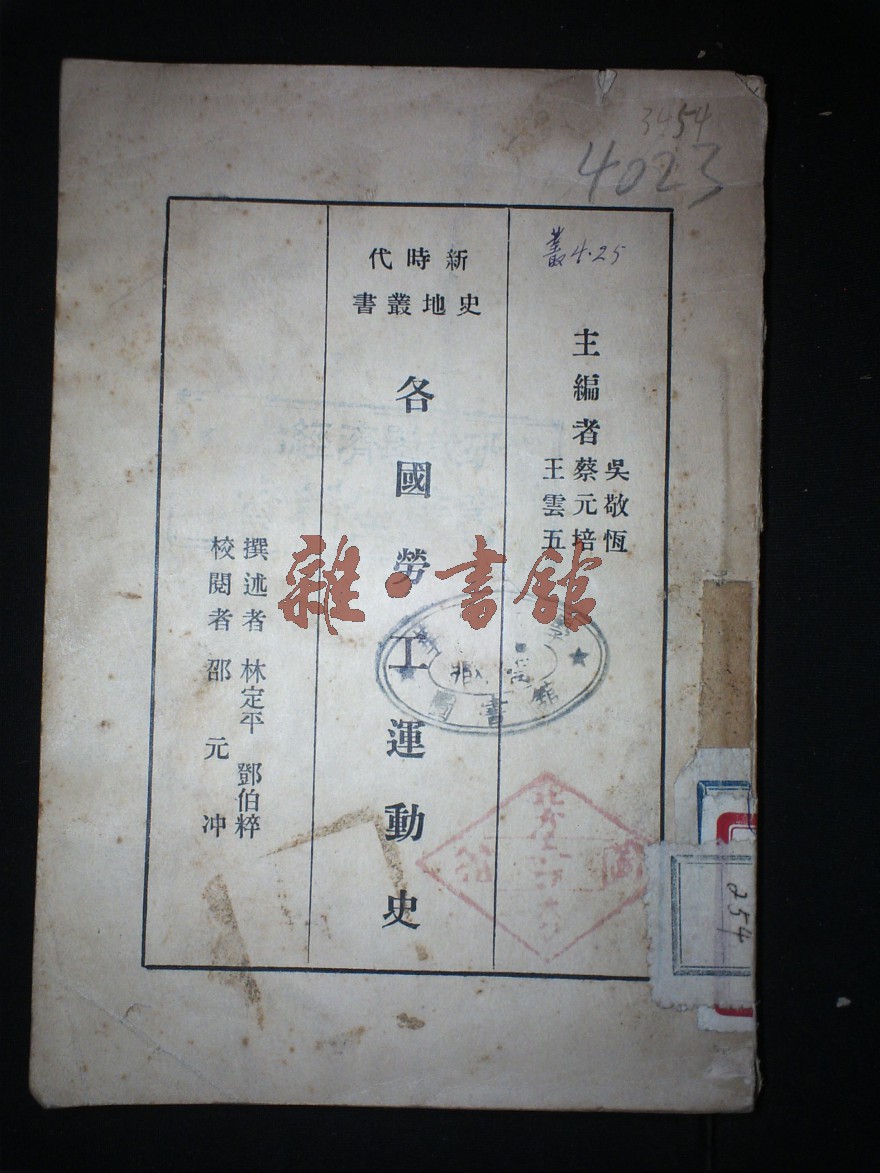 3454
4023
叢4·25
主編者
吳敬恆
蔡元培
王雲五
新時代
史地叢書
各國勞工運動史
撰述者 林定平 鄧伯粹
校閱者 邵元冲
雜·書館
圖書館
254